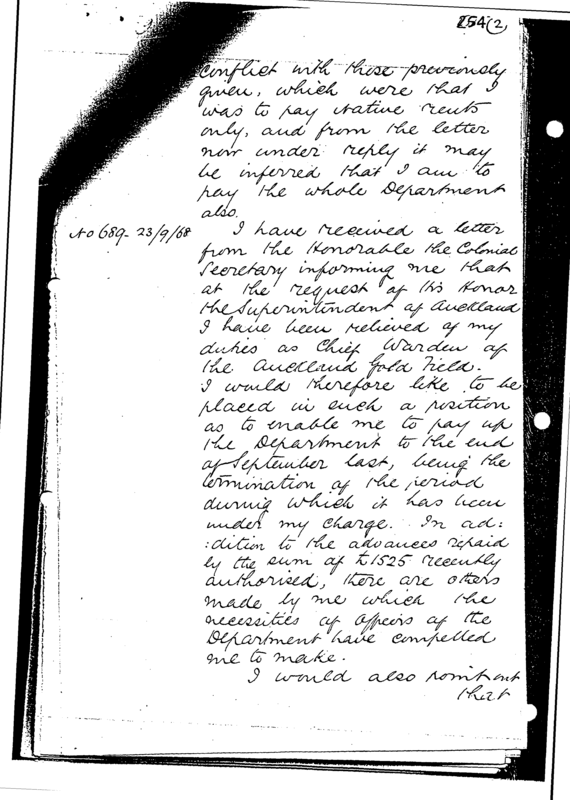 254(2)
conflict with those previously
given, which were that I
was to pay Native rents
only, and from the letter
now under reply it may
be inferred that I am to
pay the whole Department
also.
No 689- 23/9/68 I have received a letter
from the Honorable the Colonial
Secretary informing me that
at the request of His Honor
the Superintendent of Auckland
I have been relieved of my
duties as Chief Warden of
the Auckland Gold Field.
I would therefore like to be
placed in such a position
as to enable me to pay up
the Department to the end
of September last, being the
termination of the period
during which it has been
under my charge. In ad:
:dition to the advances repaid
by the sum of £1525 recently
authorised, there are others
made by me which the
necessities of officers of the
Department have compelled
me to make.
I would also point out
that